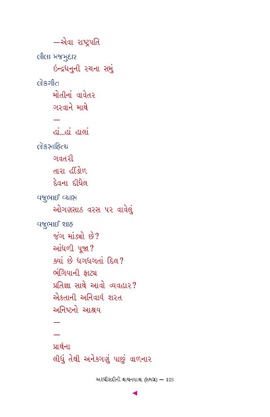 —એવા રાષ્ટ્રપતિ
લીલા મજમુદાર
ઇન્દ્રધનુની રચના સમું
લોકગીત
મોતીનાં વાવેતર
ગરવાને માથે
—
હાં...હાં હાલાં
લોકસાહિત્ય
ગવતરી
તારા હીંડોળ
દેવના દીધેલ
વજુભાઈ વ્યાસ
ઓગણસાઠ વરસ પર વાવેલું
વજુભાઈ શાહ
જંગ માંડ્યો છે?
આંધળી પૂજા?
ક્યાં છે ધગધગતાં દિલ?
ભંગિયાની ફાટ્ય
પ્રતિજ્ઞા સાથે આવો વ્યવહાર?
એકતાની અનિવાર્ય શરત
અનિષ્ટનો આશ્રય
—
—
પ્રાર્થના
લીધું તેથી અનેકગણું પાછું વાળનાર
અરધી સદીની વાચનયાત્રા — 125